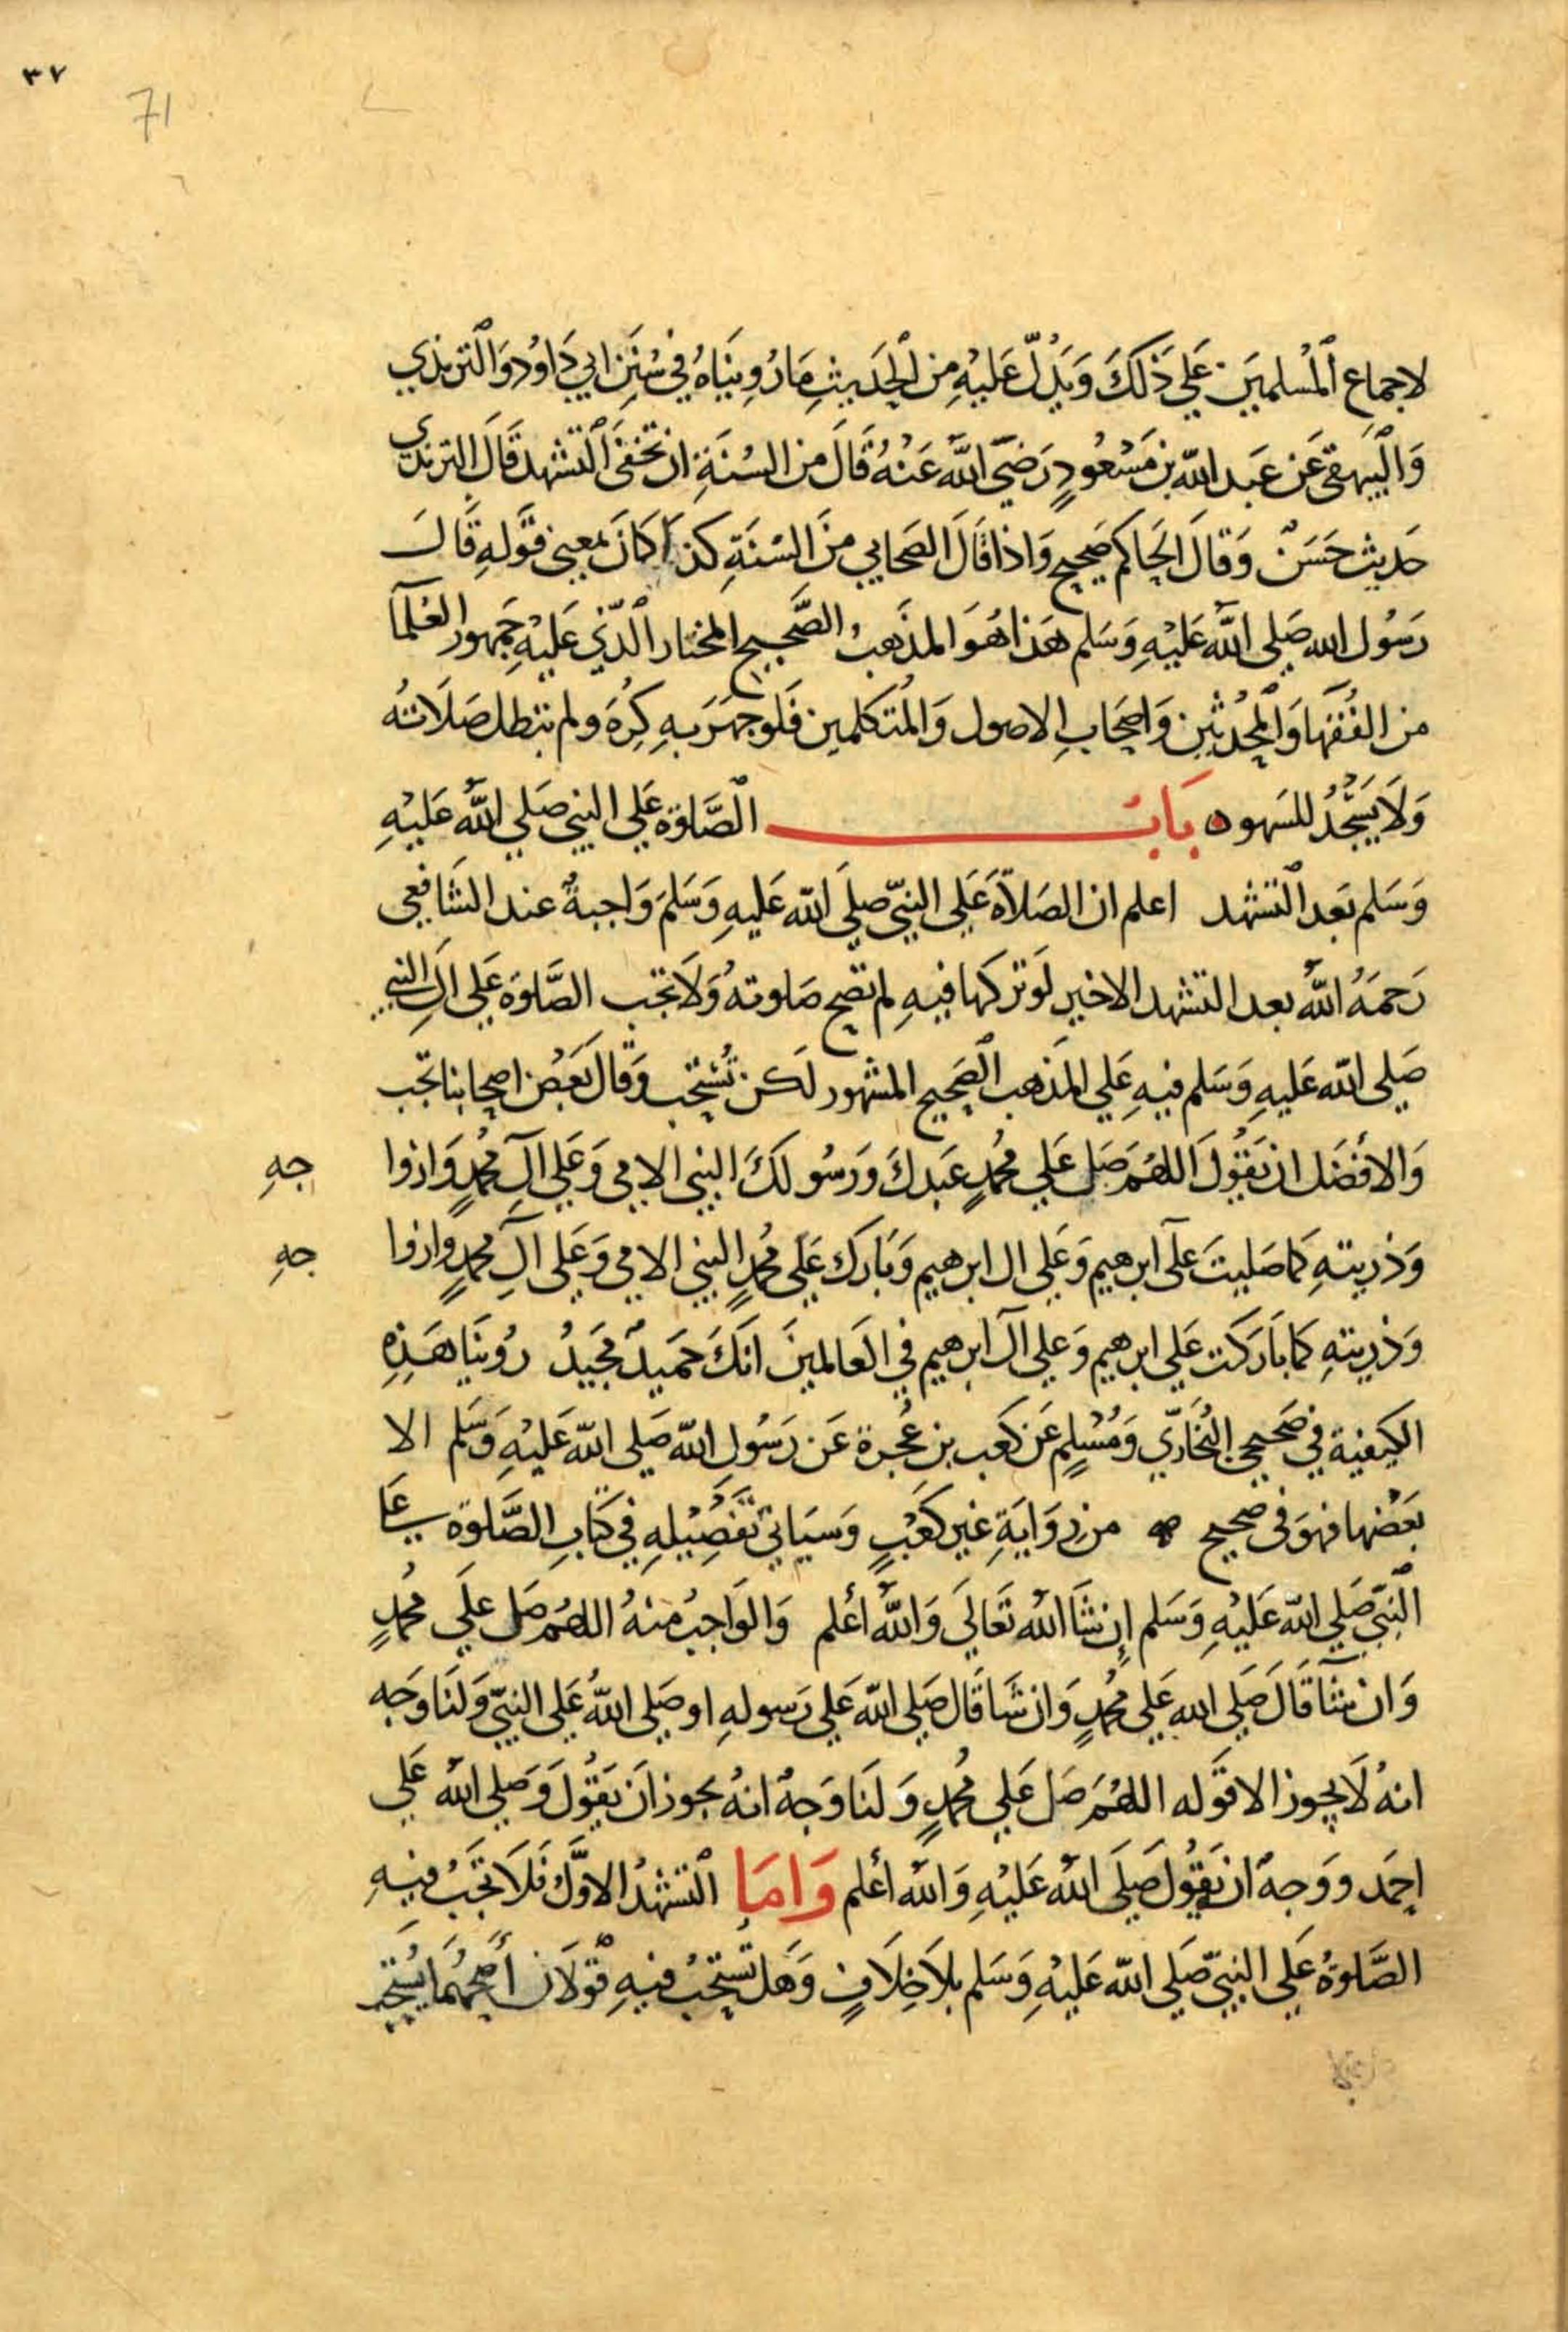 ٣٧
71
لاجماع المسلمين علي ذلك ويدل عليه من الحديث ما رويناه في سنن ابي داود والترمذي
والبيهقي عن عبد الله بن مسعود رضي الله عنه قال من السنة ان تخفى التشهد قال الترمذي
حديث حسن وقال الحاكم صحيح واذا قال الصحابي من السنة كذا كان بمعني قوله قال
رسول الله صلى الله عليه وسلم هذا هو المذهب الصحيح المختار الذي عليه جمهور العلمآ
من الفقها والمحدثين واصحاب الاصول والمتكلمين فلو جهر به كره ولم تبطل صلاته
ولا يسجد للسهو ه باب الصلوة علي النبي صلي الله عليه
وسلم بعد التشهد اعلم ان الصلاة علي النبي صلي الله عليه وسلم واجبة عند الشافعي
رحمه الله بعد التشهد الاخير لو تركها فيه لم تصح صلوته ولا تجب الصلوة علي ال النبي
صلي الله عليه وسلم فيه علي المذهب الصحيح المشهور لكن تستحب وقال بعض اصحابنا تجب
والافضل ان يقول اللهم صل علي محمد عبدك ورسولك النبي الامي وعلي آل محمد وازوا جه
وذريته كما صليت على ابرهيم وعلي ال ابرهيم وبارك علي محمد النبي الامي وعلى آل محمد وازوا جه
وذريته كما باركت علي ابرهيم وعلي آل ابرهيم في العالمين انك حميد مجيد روينا هذه
الكيفية في صحيحي البخاري ومسلم عن كعب بن عجرة عن رسول الله صلي الله عليه وسلم الا
بعضها فهو في صحيح من رواية غير كعب وسياتي تفصيله في كتاب الصلوة علي
النبي صلي الله عليه وسلم إن شا الله تعالي والله أعلم والواجب منه اللهم صل علي محمد
وان شآ قال صلي الله علي محمد وان شا قال صلي الله علي رسوله او صلي الله علي النبي ولنا وجه
انه لا يجوز الا قوله اللهم صل علي محمد ولنا وجه انه يجوز ان يقول وصلي الله علي
احمد ووجه ان يقول صلي الله عليه والله أعلم واما التشهد الاول فلا تجب فيه
الصلوة علي النبي صلي الله عليه وسلم بلا خلاف وهل تستحب فيه قولان أصحهما يستحب